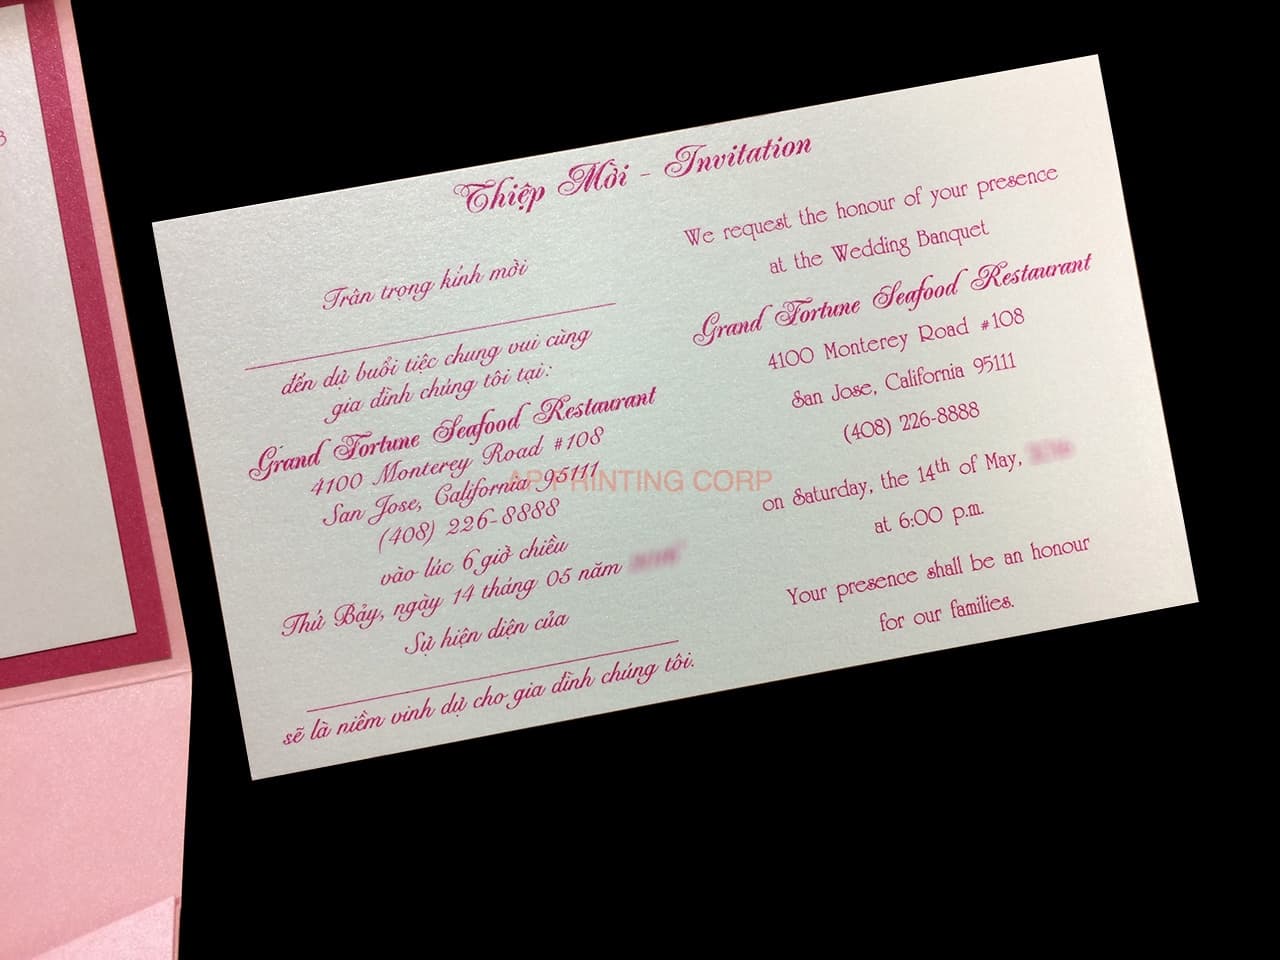 Thiệp Mời - Invitation
Trân trọng kính mời
đến dự buổi tiệc chung vui cùng
gia đình chúng tôi tại:
Grand Fortune Seafood Restaurant
4100 Monterey Road #108
San Jose, California 95111
(408) 226-8888
vào lúc 6 giờ chiều
Thứ Bảy, ngày 14 tháng 05 năm
Sự hiện diện của
sẽ là niềm vinh dự cho gia đình chúng tôi.
We request the honour of your presence
at the Wedding Banquet
Grand Fortune Seafood Restaurant
4100 Monterey Road #108
San Jose, California 95111
(408) 226-8888
on Saturday, the 14th of May,
at 6:00 p.m.
Your presence shall be an honour
for our families.
AP PRINTING CORP